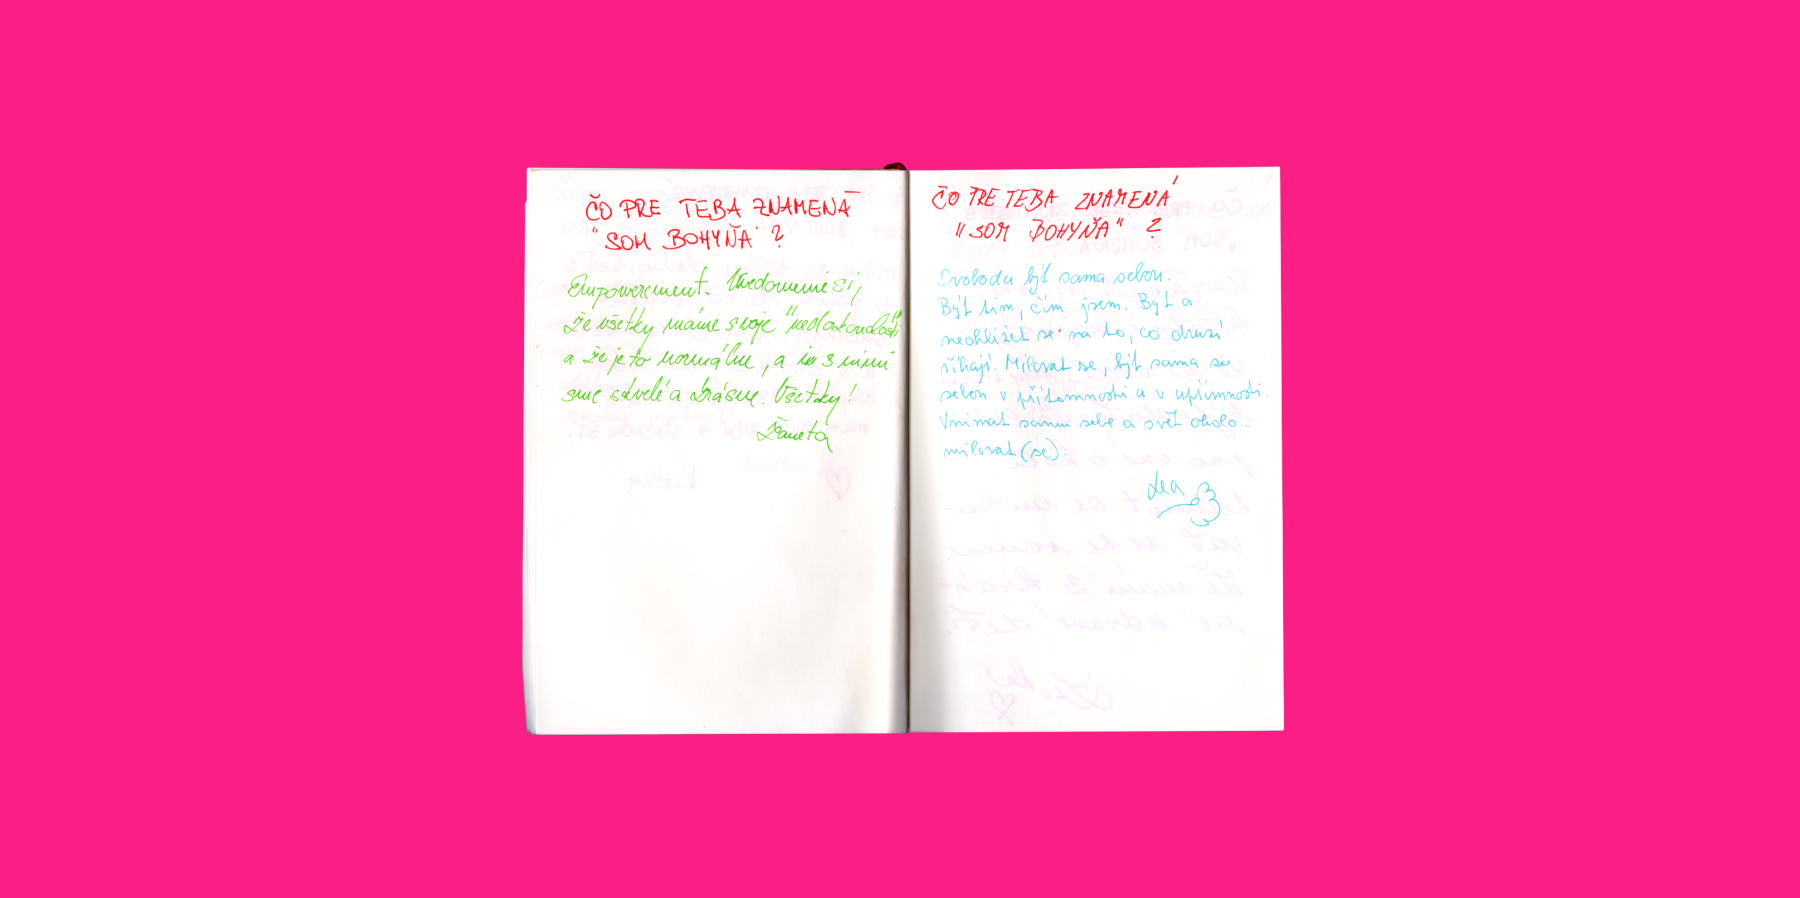 ČO PRE TEBA ZNAMENÁ
"SOM BOHYŇA" ?
Empowerement. Uvedomenie si,
že všetky máme svoje "nedokonalosti"
a že je to normálne, a i s nimi
sme skvelé a krásne. Všetky!
Žaneta
ČO PRE TEBA ZNAMENÁ
"SOM BOHYŇA" ?
Svobodu být sama sebou.
Být tím, čím jsem. Být a
neohlížet se na to, co druzí
říkají. Milovat se, být sama se
sebou v přítomnosti a v upřímnosti.
Vnímat samu sebe a svět okolo...
milovat (se).
Lea